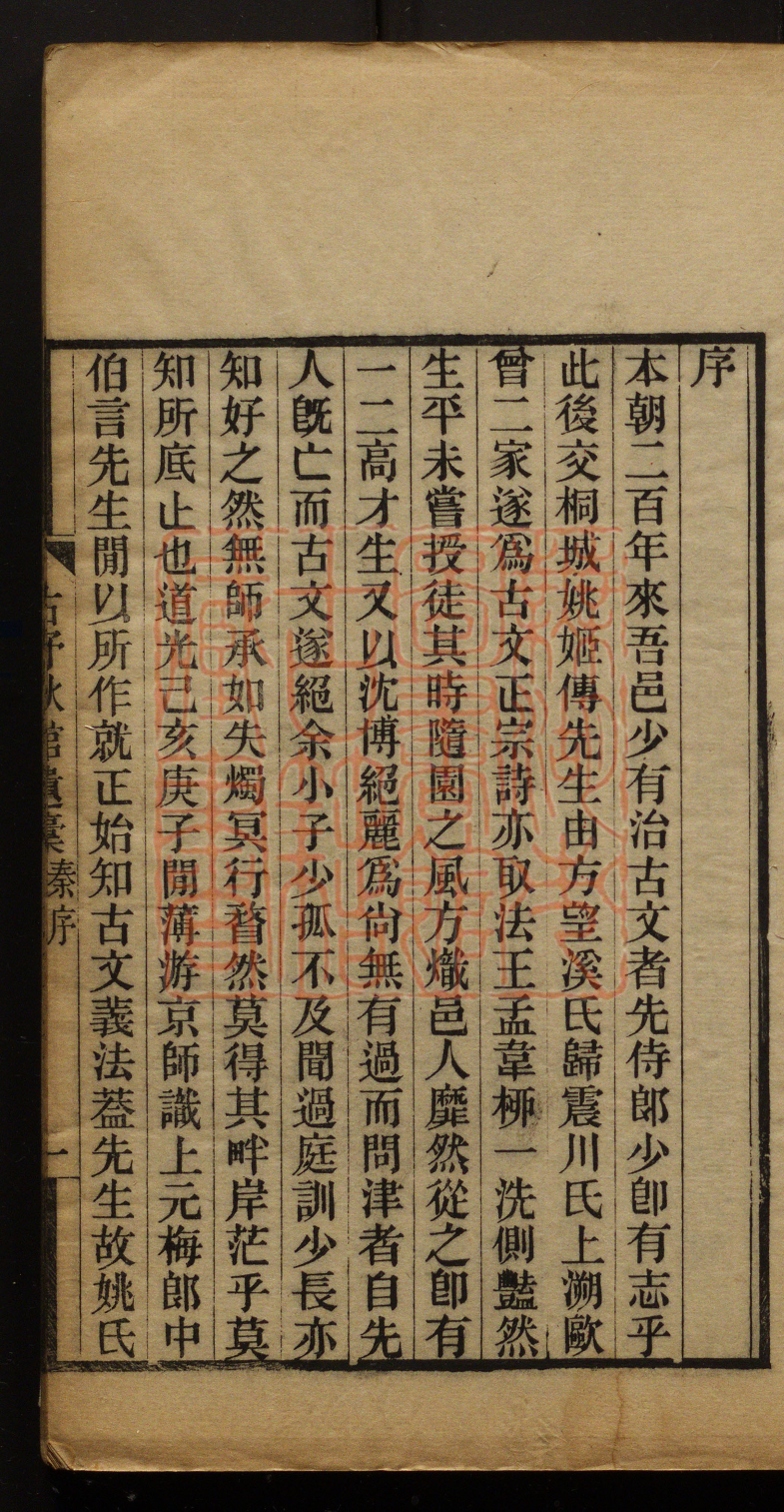 序
本朝二百年來吾邑少有治古文者先侍郎少卽有志乎
此後交桐城姚姬傳先生由方望溪氏歸震川氏上溯歐
曾二家遂爲古文正宗詩亦取法王孟韋栁一洗側豔然
生平未嘗授徒其時隨園之風方熾邑人靡然從之卽有
一二高才生又以沈博絕麗爲尙無有過而問津者自先
人旣亡而古文遂絕余小子少孤不及聞過庭訓少長亦
知好之然無師承如失燭冥行瞀然莫得其畔岸茫乎莫
知所底止也道光己亥庚子閒薄游京師識上元梅郎中
伯言先生閒以所作就正始知古文義法葢先生故姚氏
秦序
一